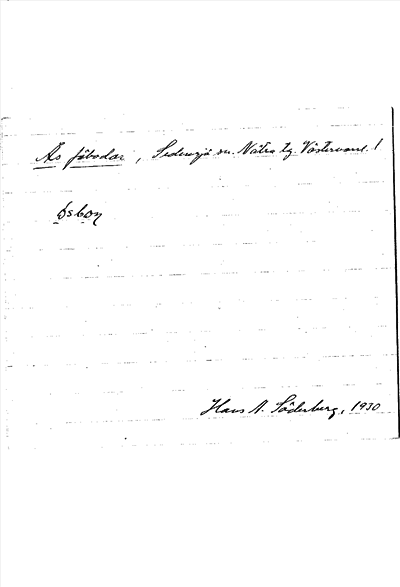 Ås fäbodar, Sidensjö sn. Nätra tg. Västernorrl. l
åsbọη
Hans A. Söderberg, 1930